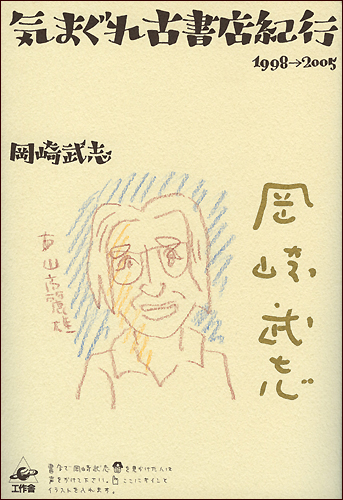 気まぐれ古書店紀行
1998→2005
岡崎武志
岡崎武志
古山高麗雄
工作舎
書店で岡崎武志を見かけた人は
声をかけて下さい。ここにサインと
イラストを入れます。